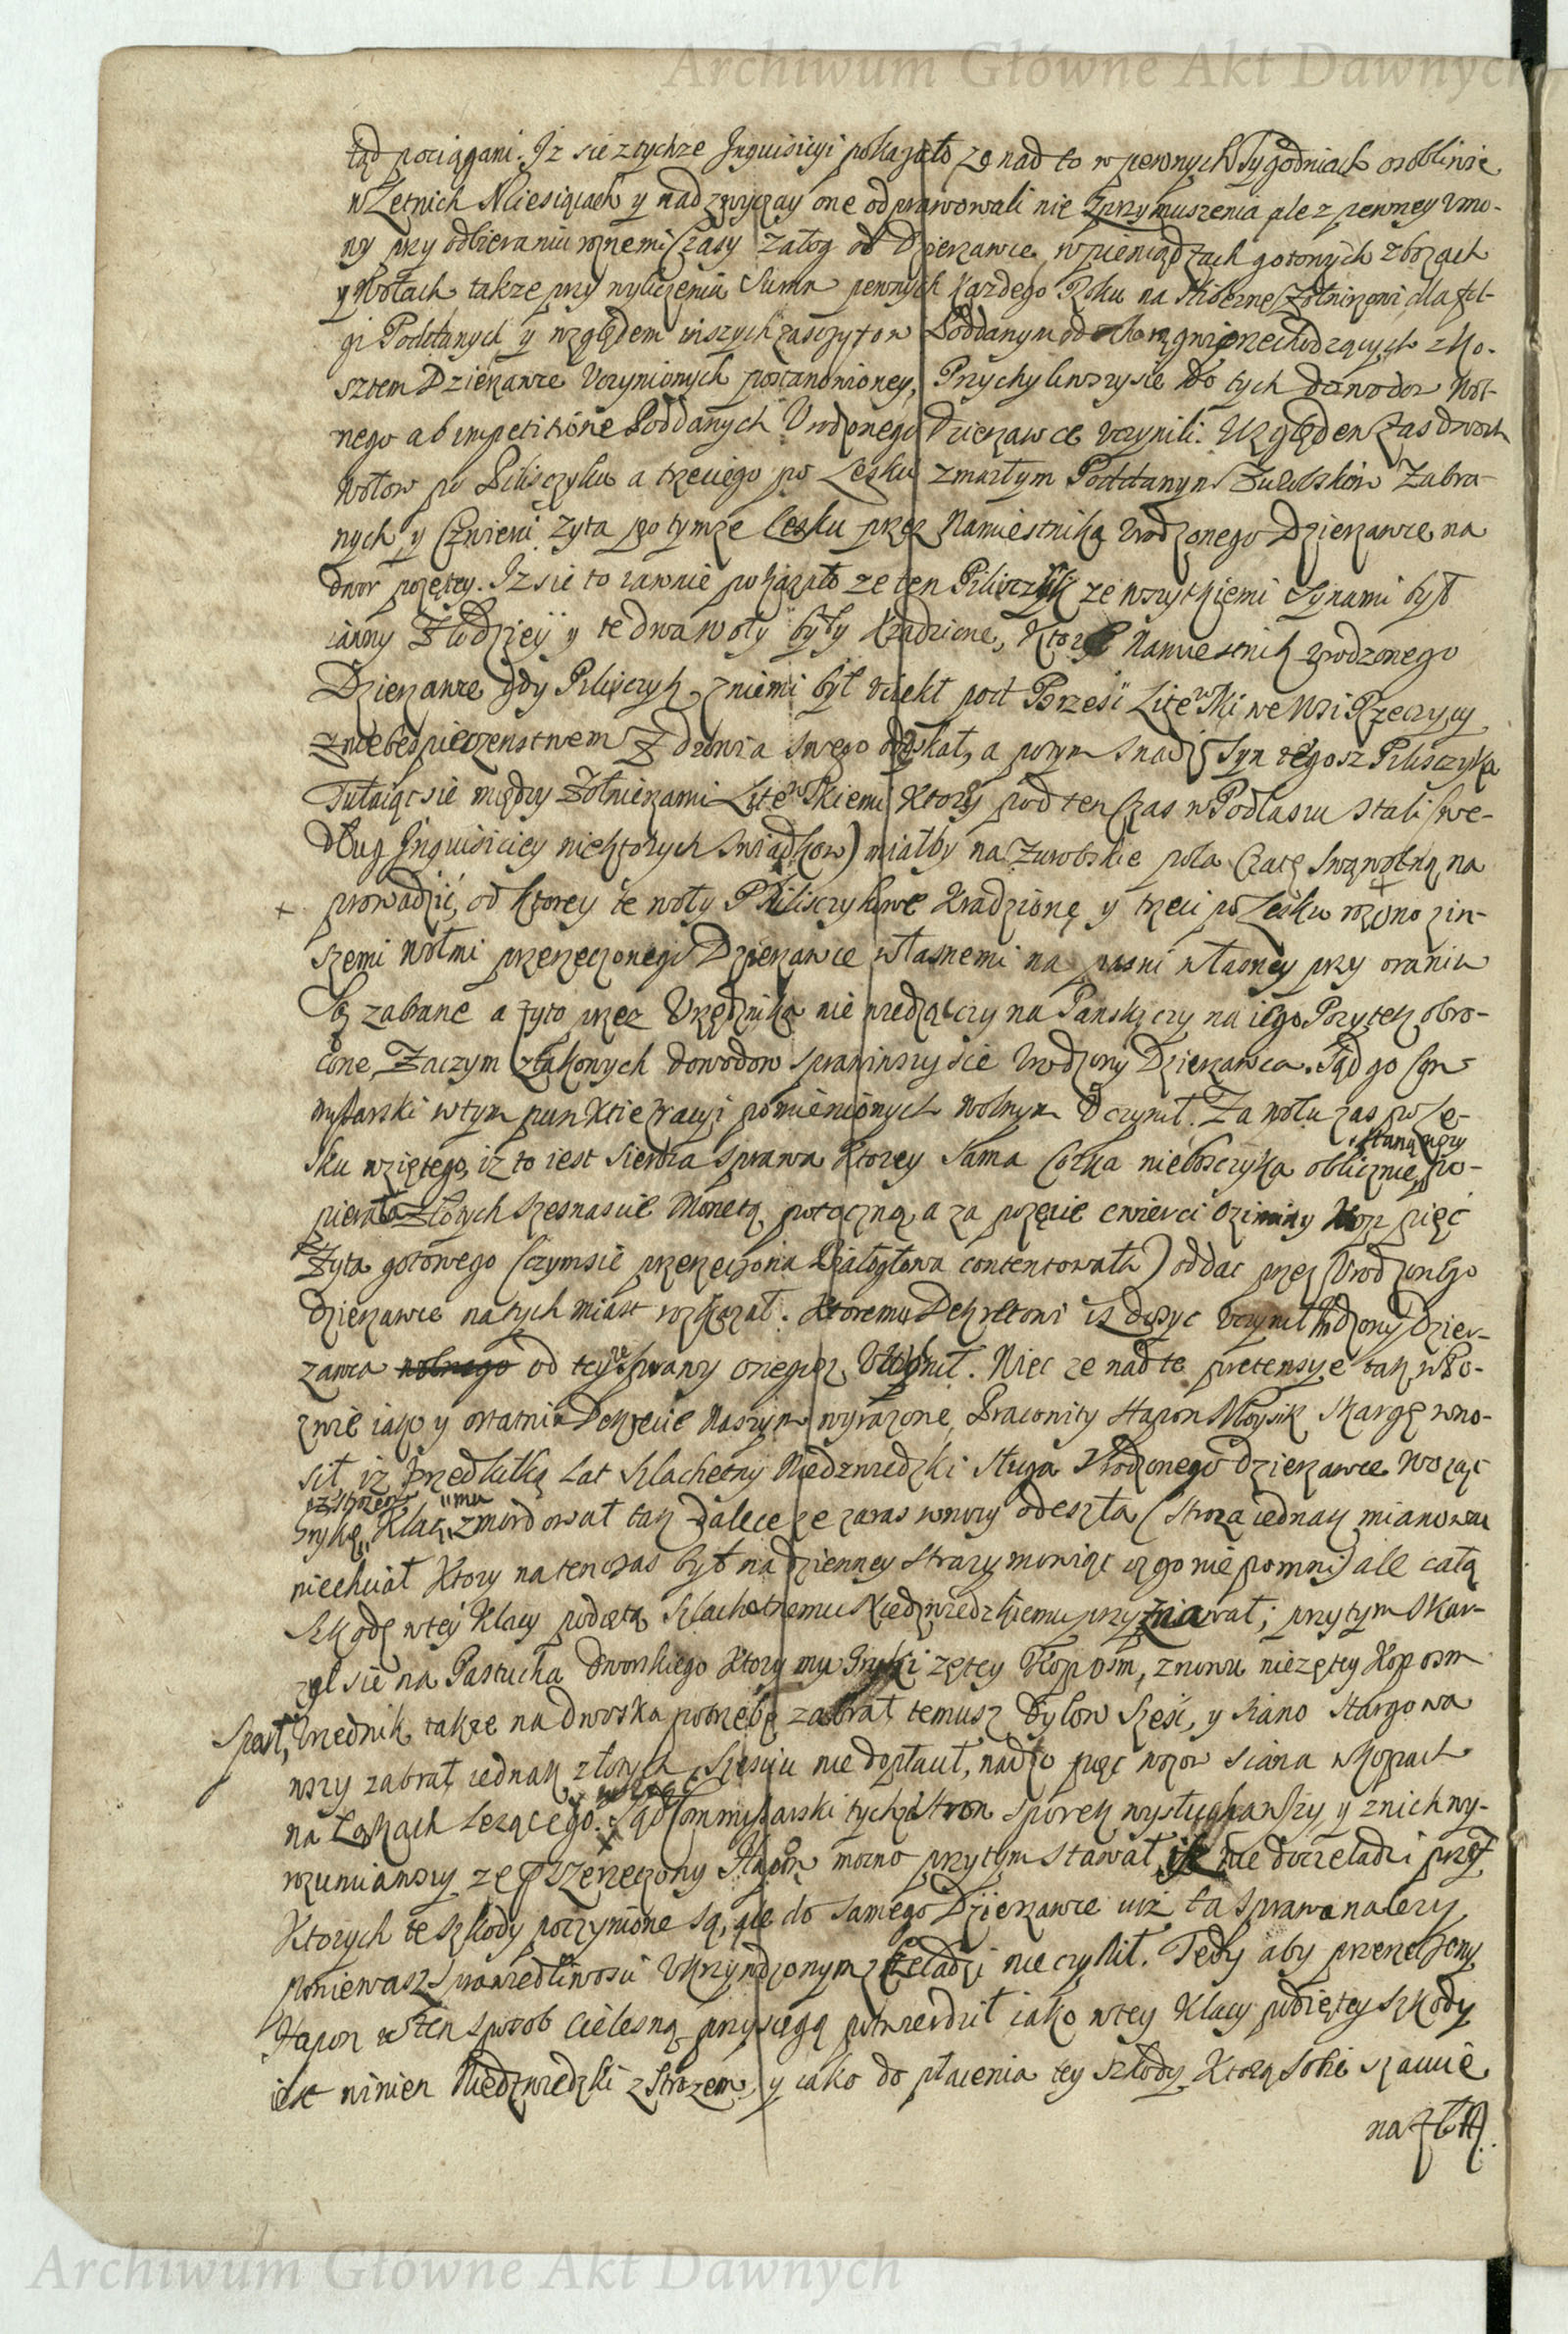 Archiwum Główne Akt Dawnych
tąd pociągani. Iz sie z tychze Inquisicyi pokazało ze nad to w pewnych Tygodniach osobliwie
w Letnich Miesiącach y nad zwyczay one odprawowali nie z przymuszenia ale z pewney vmo-
wy przy odbieraniu roznemi Czasy załog od Dzierzawce, w pieniądzach gotowych zbozach
y Wołach takze przy wyliczeniu Summ pewnych kazdego Roku na Hiberne Zołnierzowi, dla fol-
gi Poddanych y względem inszych zasczytow Poddanym od Chorągwi przechodzących z ko-
sztem Dzierzawce Vczynionych postanowioney, Przychyliwszysie do tych dowodow wol-
nego ab impetitione Poddanych Vrodzonego Dzierzawce vczynili. Względem zas dwoch
Wołow po Piliszczyku a trzeciego po Lesku zmarłym Poddanym Zabra-
nych y Czwierci zyta po tymze Lesku przez Namiestnika Vrodzonego Dzierzawce na
dwor pozętey. Iz sie to iawnie pokazało ze ten Piliszczyk ze wszytkiemi Synami był
iawny Złodziey y te dwa woły były kradzione, Ktore Namiestnik Vrodzonego
Dzierzawce gdy Piliszczyk z niemi był vciekł pod Brześć Litewski we Wsi Rzeczycy
z niebespieczenstwem Zdrowia swego odyskał, a potym snadz Syn tegosz Piliszczyka
Tułaiąc sie między Zołnierzami Litewskiemi Ktorzy pod ten Czas w Podlaszu stali (we-
dług Inquisiciey niektorych swiadkow) miałby na pola Czatę swąwolną na
prowadzić, od ktorey te woły Piliszczykowe kradzione y trzeci po Lesku rożno z in-
szemi wołmi przerzeczonego Dzierzawce własnemi na paszni własney przy oraniu
Są zabrane a zyto przez Vrzędnika nie wiedząc czy na Panski czy na iego Pozytek obro-
cone, Zaczym z takowych dowodow sprawiwszy sie Vrodzony Dzierzawca. Sąd go Com
myssarski w tym punktie z racyi pomienionych wolnym Vczynił. Za wołu zas po Le-
sku wziętego, iz to iest sieroca sprawa ktorey sama Corka nieboszczyka oblicznie stanąwszy po-
pierała Złotych szesnascie Monetą potoczną a za pozęcie cwierci oziminy Kop pięć
Zyta gotowego (czym sie przerzeczona Białogłowa contentowała) oddac przez Vrodzonego
Dzierzawce natych miast rozkazał. Ktoremu Dekretowi iz dosyc vczynił Vrodzony Dzier-
zawca od tey sprawy onegosz Vwolnił. Więc ze nad te pretensye tak w Po-
zwie iako y ostatnim Dekrecie Naszym wyrazone, Pracowity Hapon Moysik skargę wno-
sił iz przed kilką Lat Szlachetny Niedzwiedzki sługa Vrodzonego Dzierzawce wożąc
z strozem
Grykę Klacz mu zmordował tak dalece ze zaraz w nocy odeszła (stroza iednak mianowac
niechciał Ktory na ten czas był na dzienney strazy mowiąc iz go nie pomni) ale całą
szkodę w tey Klaczy podiętą Szlachetnemu Niedzwiedzkiemu przyznawał; przytym skar-
zył sie na Pastucha dworskiego ktory mu Gryki zętey Kop osm, znowu niezętey Kop osm
spasł, Vrzednik takze na dworska potrzebę zabrał temusz Dylow szesć, y siano stargowa
wszy zabrał iednak złotych szesciu nie dopłacił, nadto pięć wozow siana w kopach
na Łąkach lezącego. Sąd Commyssarski tych stron sporek wysłuchawszy y z nich wy-
rozumiawszy ze przerzeczony Hapon mocno przytym stawał ize nie do czeladzi przez
Ktorych te szkody poczynione są, ale do samego Dzierzawce iuz ta sprawa nalezy,
poniewasz sprawiedliwosci Vkrzywdzonym z Czeladzi nie czynił. Tedy aby przerzeczony
Hapon w ten sposob cielesną przysięgą potwierdził iako w tey Klaczy podiętey szkody
iest winien Niedzwiedzki z strozem, y iako do płacenia tey szkody, ktorą sobie szacuie
na Zł
Archiwum Główne Akt Dawnych